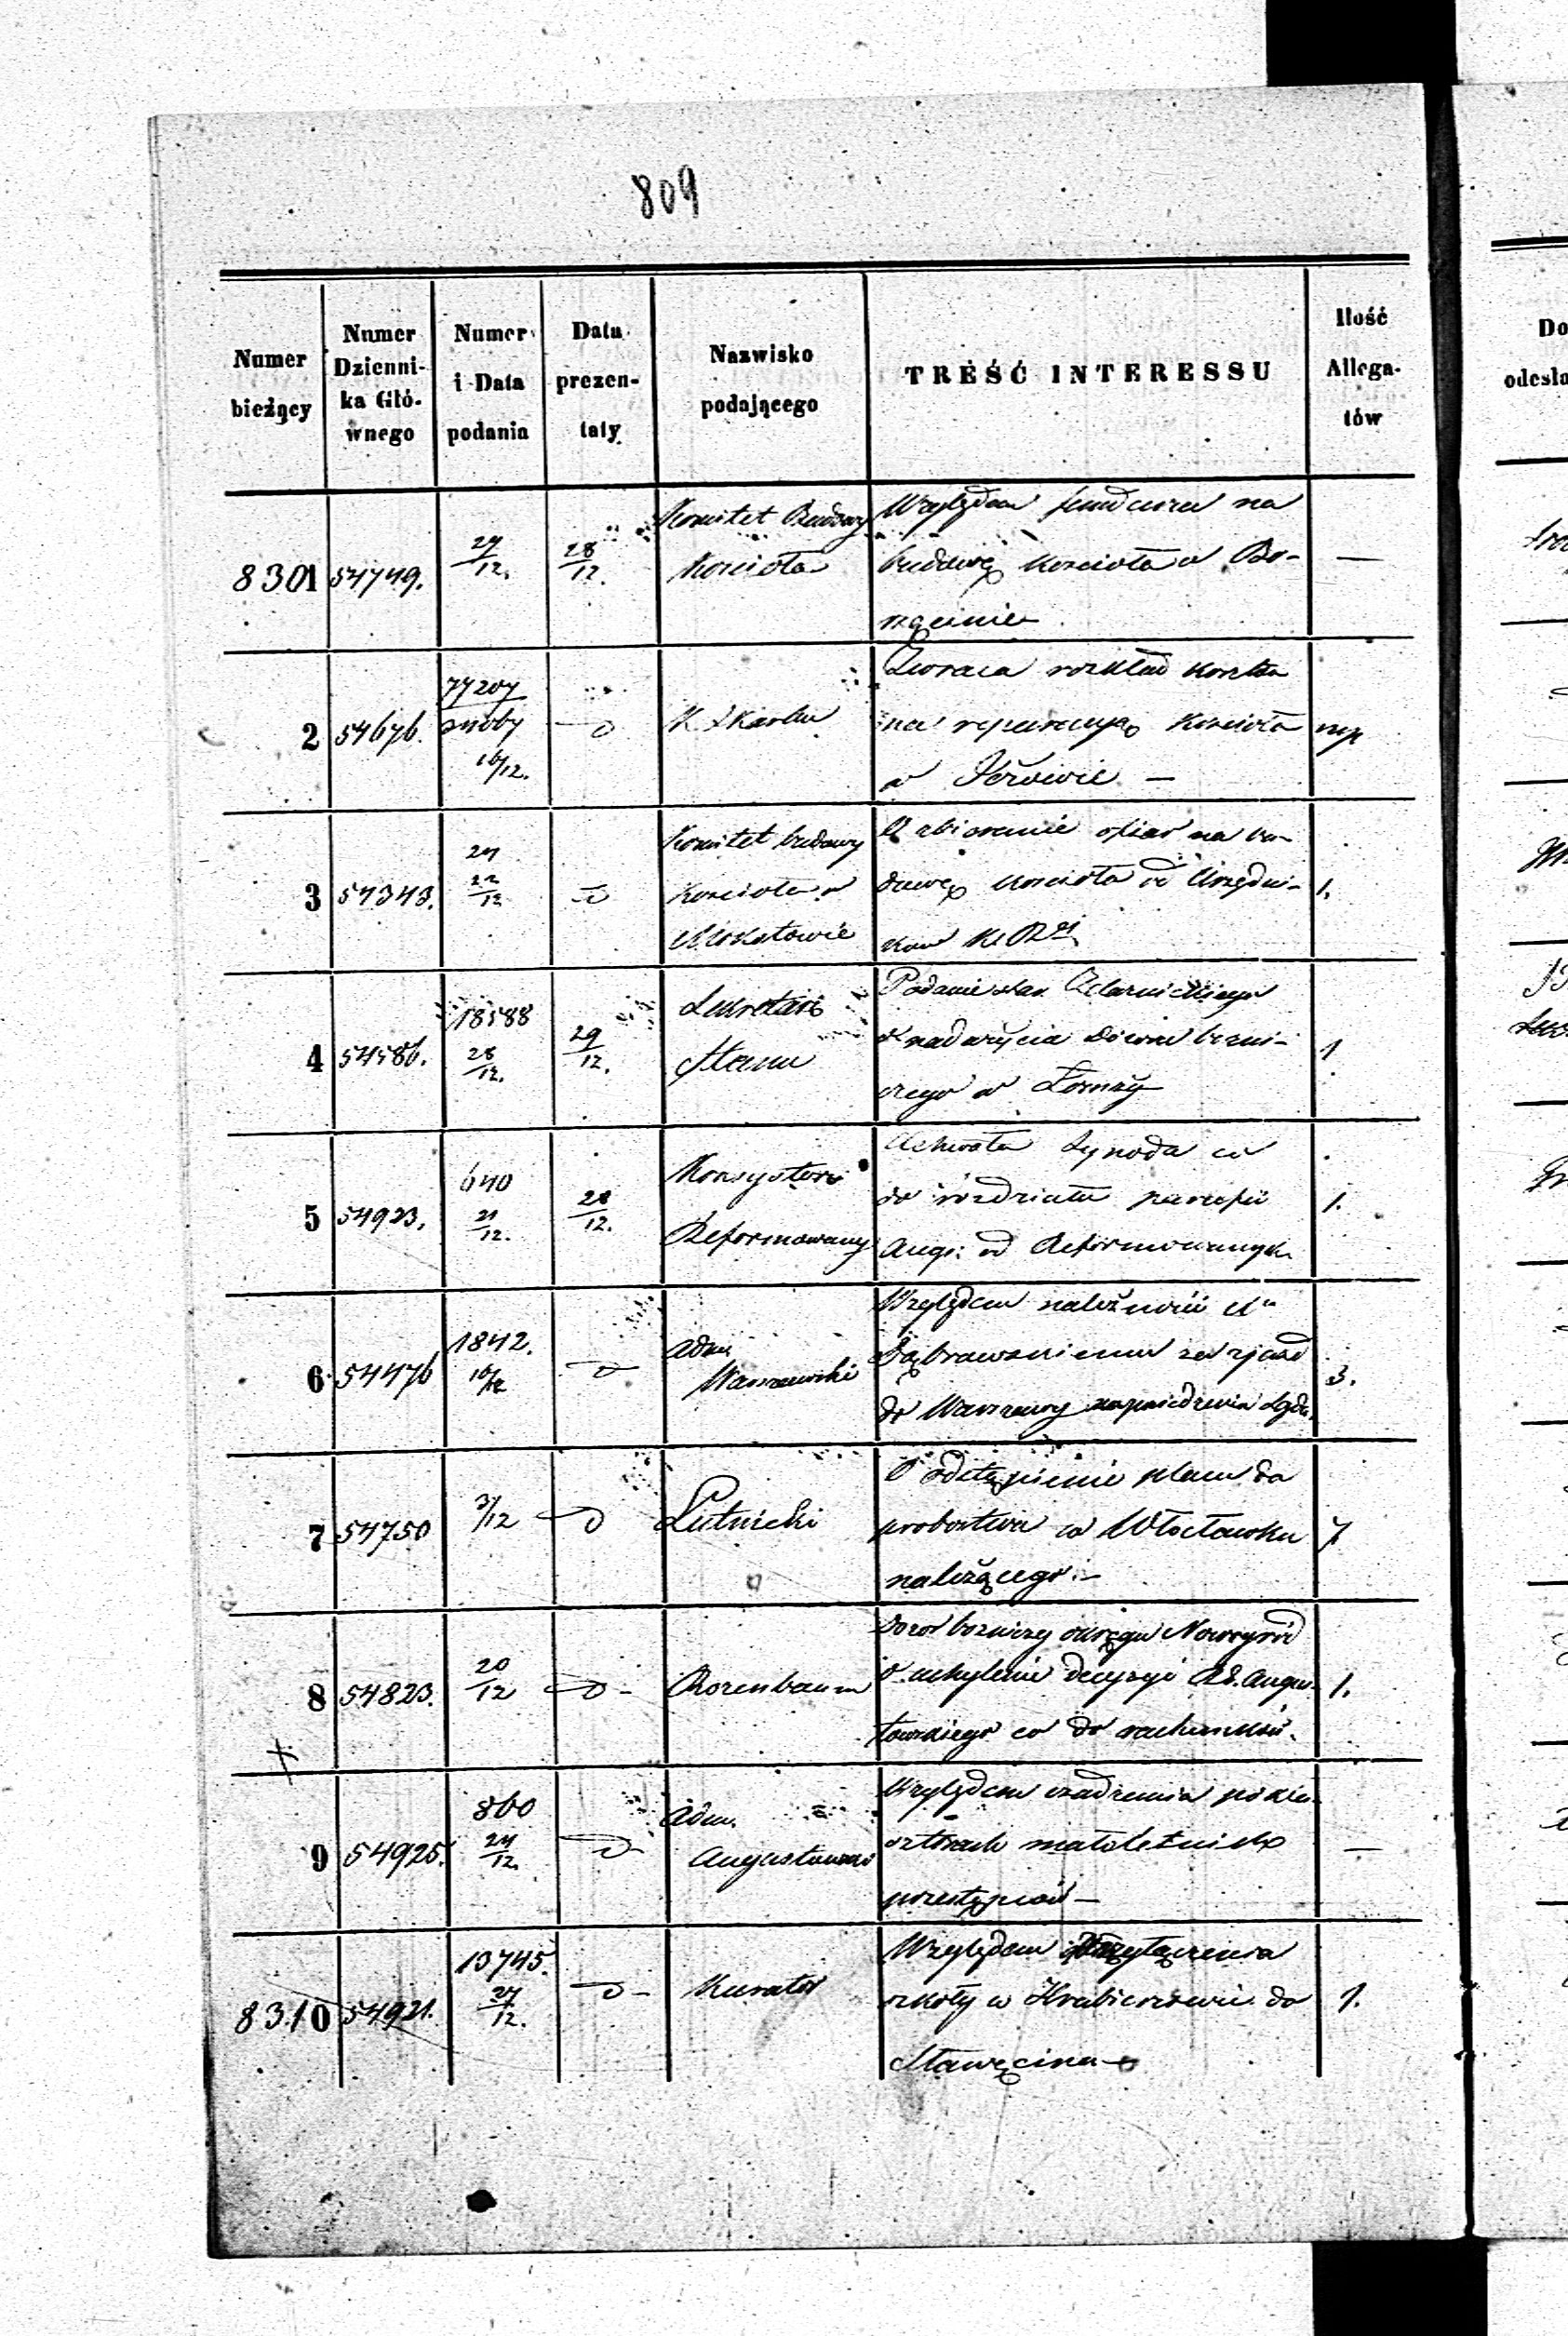 809
Numer bieżący
Numer Dzienni- ka Głó- wnego
Numer i Data podania
Data prezen- taty
Nazwisko podającego
TREŚĆ INTERESSU
Ilość Allega- tów
8301 54749. 27/12. 28/12.
Komitet Budowy
Kościoła
Względem funduszu na
budowę Kościoła w Bo-
rzęcinie
—
2 54676. 77207 16/12.
K. Skarbu
Zwraca rozkład koszta
na reparacyę Kościoła
w
3 54343. 22/12
Komitet budowy
Kościoła w
Mokotowie
O zbieranie ofiar na bu-
dowę Kościoła od Urzędni-
ków
1.
4 54586. 18588 28/12. 29/12.
Sekretarz
Stanu
Podanie
o nadużycia dozoru bożni-
czego w Łomży
1
5 54923. 640 21/12. 28/12.
Konsystorz
Reformowany
Uchwała Synoda co
do rozdziału parafii
Augs: od Reformowanych
1.
6 54476 1842. 16/12
Adm.
Warszawski
Względem należności
Dąbrowskiemu za zjazd
do Warszawy
3.
7 54750 3/12
Lutnicki
O odstąpienie placu do
probostwa w Włocławku
należącego.—
7
8 54823. 20/12
Rozenbaum
Dozór bożniczy okręgu Nowogród
o uchylenie decyzyi Rd. Augus-
towskiego co do rachunków.
1.
9 54925. 860 27/12.
Adm.
Augustowski
Względem osadzenia po kla-
sztorach małoletnich
przestępców —
—
8310 54921. 13745. 27/12.
Kurator
Względem przyłączenia
szkoły w Hrubieszowie do
Sławęcina
1.
Do
odesła